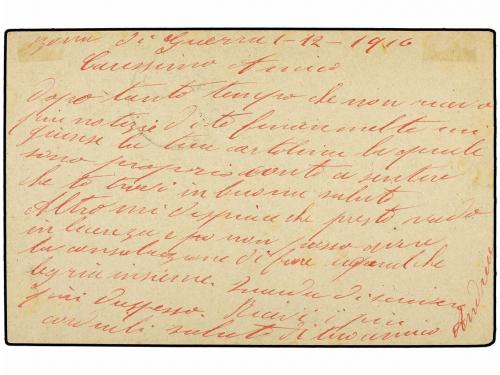 Zona di Guerra 1-12-1916
Carissimo Amico
dopo tanto tempo che non ricevo
più notizie di te finalmente mi
giunse la tua cartolina la quale
sono proprio conto a sentire
che te trovi in buona salute
Altro mi dispiace che presto vado
in licenza e po non posso avere
la consolazione di fare qualche
legria insieme.
più duspesso. Ricevi i più
cordiali saluti di tuo amico
Andrea